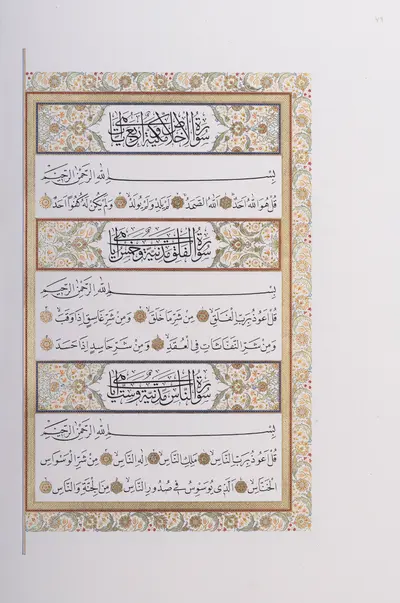 سورة الاخلاص مكية اربع آيات
بِسْمِ اللهِ الرَّحْمٰنِ الرَّحِيمِ
قُلْ هُوَ اللهُ اَحَدٌ اَللهُ الصَّمَدُ لَمْ يَلِدْ وَلَمْ يُولَدْ وَلَمْ يَكُنْ لَهُ كُفُوًا اَحَدٌ
سورة الفلق مدنية وخمس آيات
بِسْمِ اللهِ الرَّحْمٰنِ الرَّحِيمِ
قُلْ اَعُوذُ بِرَبِّ الْفَلَقِ مِنْ شَرِّ مَا خَلَقَ وَمِنْ شَرِّ غَاسِقٍ اِذَا وَقَبَ
وَمِنْ شَرِّ النَّفَّاثَاتِ فِى الْعُقَدِ وَمِنْ شَرِّ حَاسِدٍ اِذَا حَسَدَ
سورة الناس مدنية وست آيات
بِسْمِ اللهِ الرَّحْمٰنِ الرَّحِيمِ
قُلْ اَعُوذُ بِرَبِّ النَّاسِ مَلِكِ النَّاسِ اِلٰهِ النَّاسِ مِنْ شَرِّ الْوَسْوَاسِ
الْخَنَّاسِ اَلَّذِى يُوَسْوِسُ فِى صُدُورِ النَّاسِ مِنَ الْجِنَّةِ وَالنَّاسِ